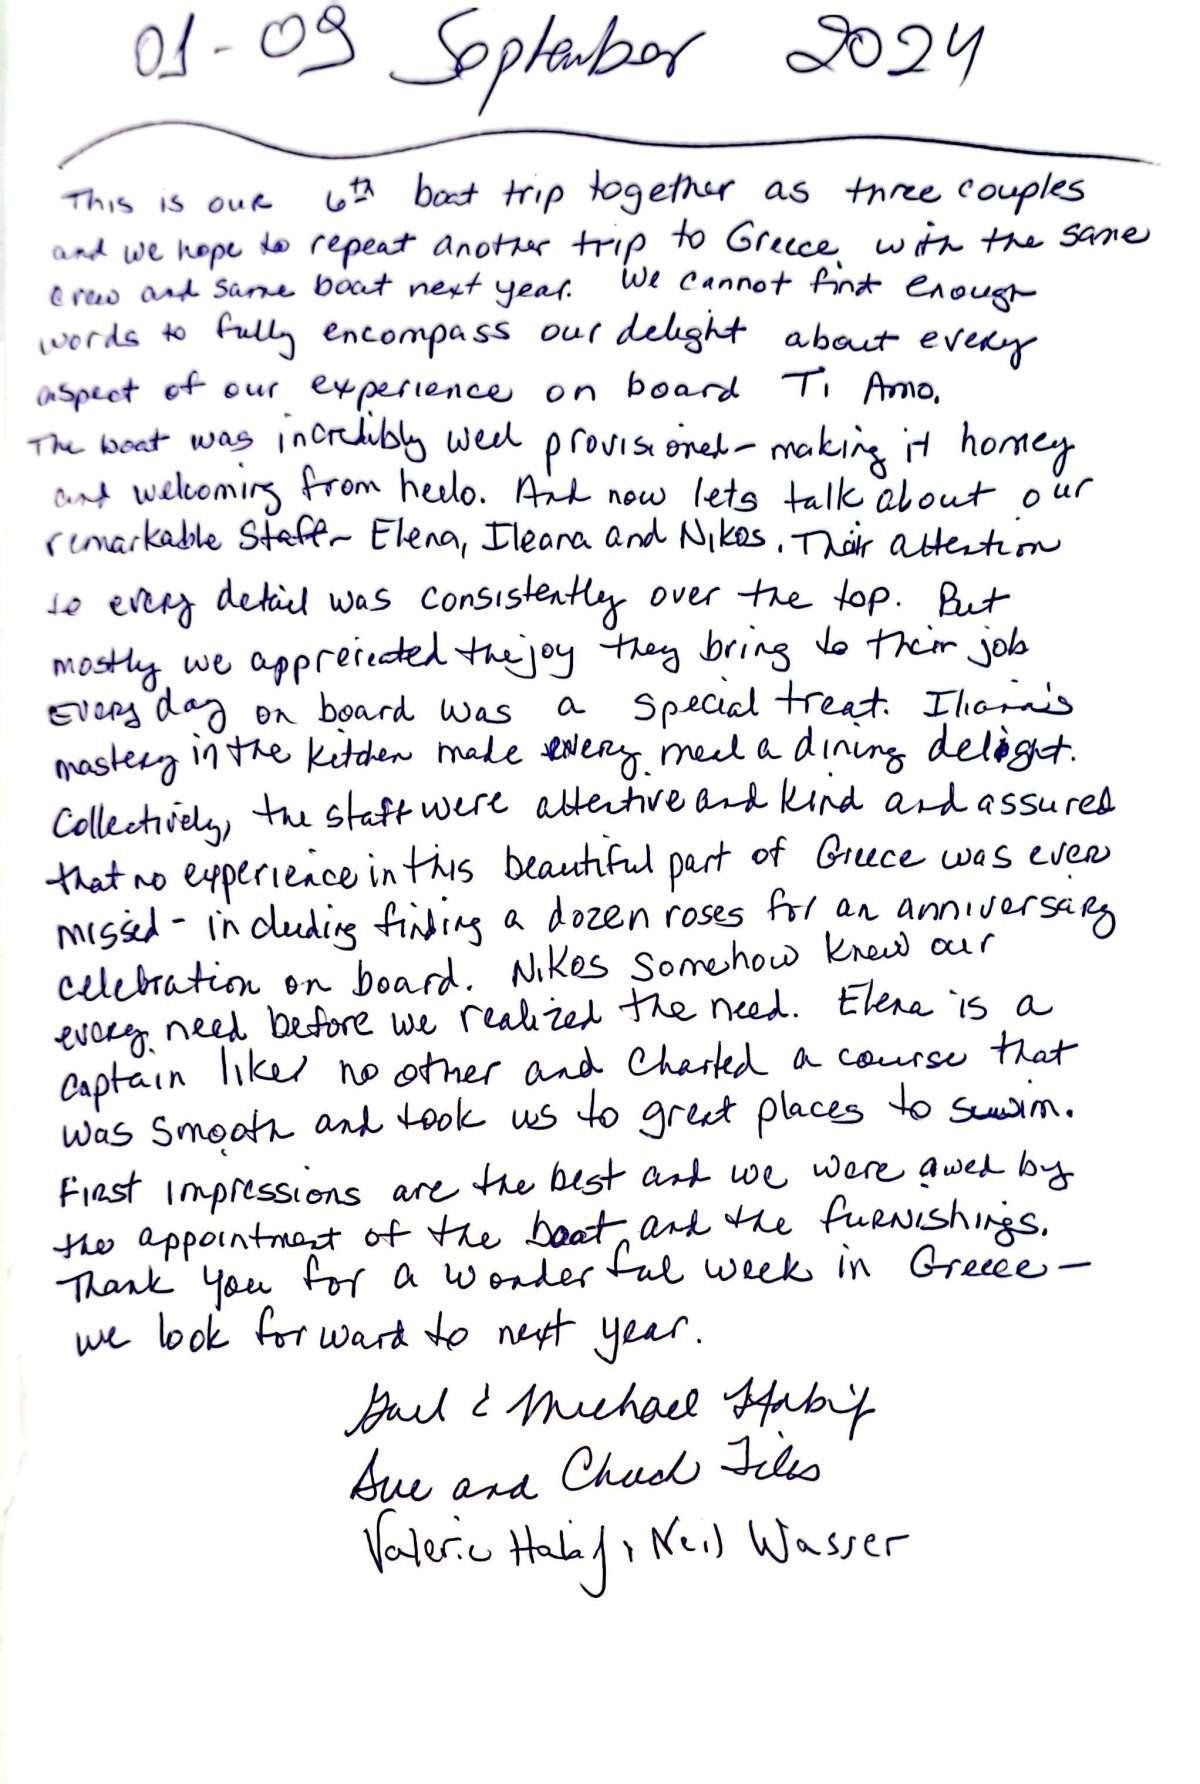 01-09 September 2024
This is our 6th boat trip together as three couples
and we hope to repeat another trip to Greece with the same
crew and same boat next year. We cannot find enough
words to fully encompass our delight about every
aspect of our experience on board Ti Amo.
The boat was incredibly well provisioned - making it homey
and welcoming from hello. And now lets talk about our
remarkable staff - Elena, Ileana and Nikos. Their attention
to every detail was consistently over the top. But
mostly we appreciated the joy they bring to their job
Every day on board was a special treat. Iliana's
mastery in the kitchen made every meal a dining delight.
Collectively, the staff were attentive and kind and assured
that no experience in this beautiful part of Greece was ever
missed - including finding a dozen roses for an anniversary
celebration on board. Nikos somehow knew our
every need before we realized the need. Elena is a
captain like no other and charted a course that
was smooth and took us to great places to swim.
First impressions are the best and we were awed by
the appointment of the boat and the furnishings.
Thank you for a wonderful week in Greece -
we look forward to next year.
Gail & Michael Habif
Sue and Chuck
Valerie Habif, Neil Wasser